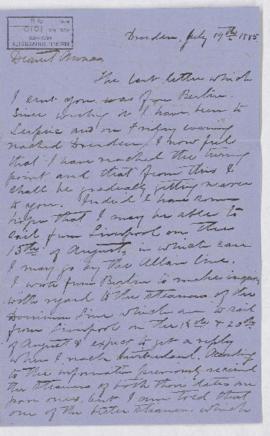 Dresden, July 19th 1885
Dearest
The last letter which
I sent you was from Berlin.
Since writing it I have been to
Leipsic and on Friday evening
reached Dresden. I now feel
that I have reached the turning
point and that from this I
shall be gradually getting nearer
to you. Indeed I have some
hope that I may be able to
sail from Liverpool on the
13th of August, in which case
I may go by the Allan Line.
I wrote from Berlin to make inquiry
with regard to the steamers of the
Dominion Line which are to sail
from Liverpool on the & 20th
of August & expect to get a reply
when I reach Amsterdam. According
to the information previously received
the steamers of both those dates are
poor ones, but I am told that
one of the better steamers, which